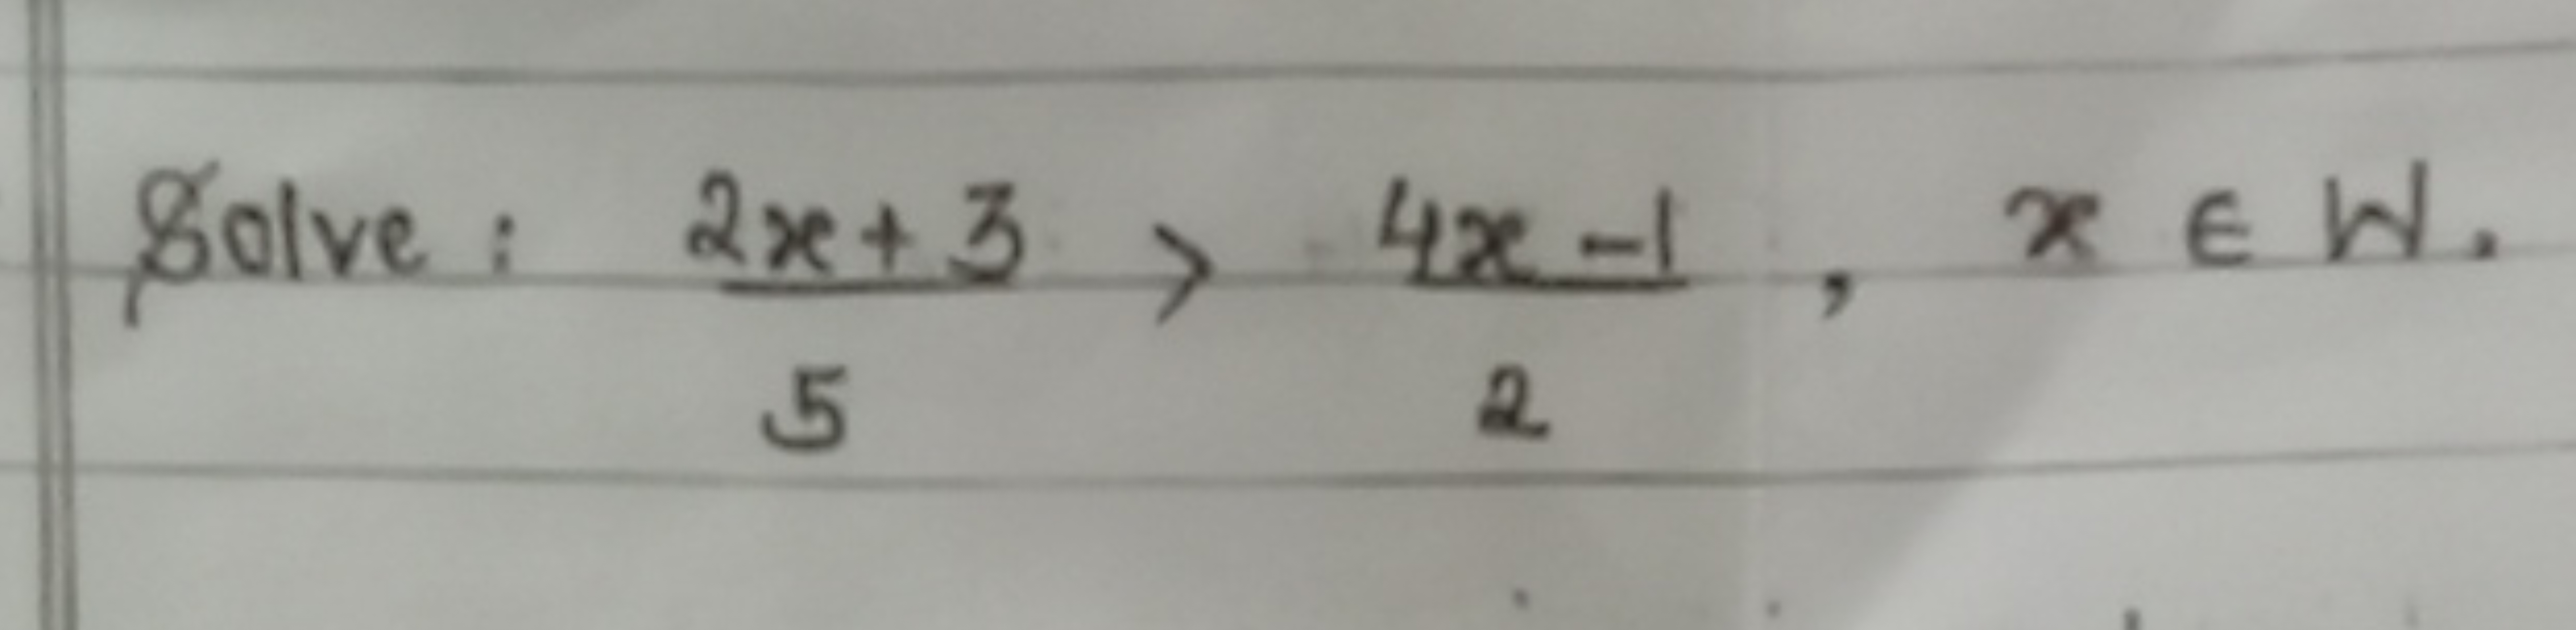 Solve : (2x + 3)/5 > (4x - 1)/2 , x ∈ W.